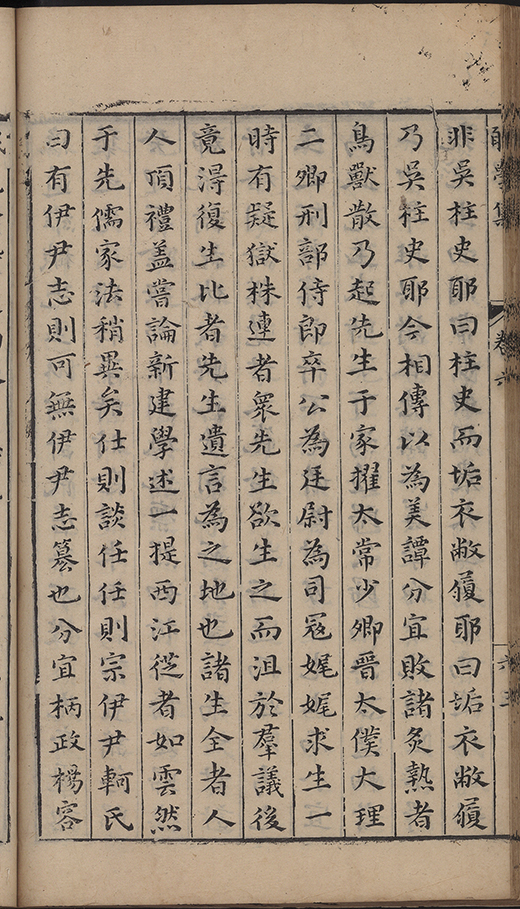 非吳柱史耶曰柱史而垢衣敝履耶曰垢衣敝履
乃吳柱史耶今相傳以為美譚分宜敗諸炙熱者
鳥獸散乃起先生于家擢太常少卿晉太僕大理
二卿刑部侍郎卒公為廷尉為司寇娓娓求生一
時有疑獄株連者衆先生欲生之而沮於羣議後
竟得復生比者先生遺言為之地也諸生全者人
人頂禮盖嘗論新建學述一提西江從者如雲然
于先儒家法稍異矣仕則談任任則宗伊尹軻氏
曰有伊尹志則可無伊尹志簒也分宜柄政楊容